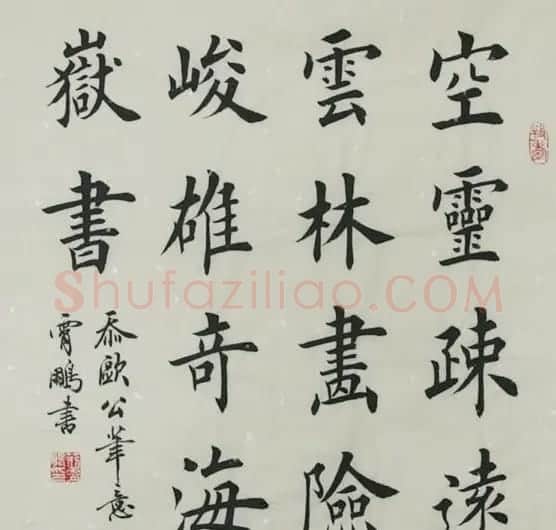 空靈疎遠
雲林畫險
峻雄奇海
嶽書
忝歐公筆意
霄鵬書
Shufaziliao.COM